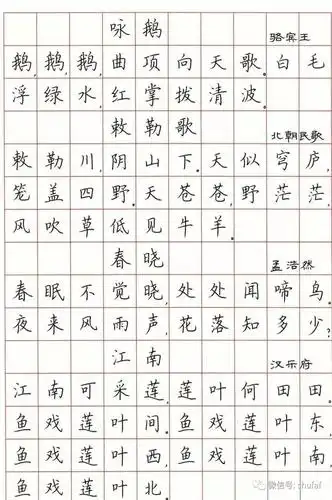 咏鹅 骆宾王
鹅,鹅,鹅,曲项向天歌。白毛
浮绿水,红掌拨清波。
敕勒歌 北朝民歌
敕勒川,阴山下。天似穹庐,
笼盖四野。天苍苍,野茫茫,
风吹草低见牛羊。
春晓 孟浩然
春眠不觉晓,处处闻啼鸟。
夜来风雨声,花落知多少?
江南 汉乐府
江南可采莲,莲叶何田田。
鱼戏莲叶间。鱼戏莲叶东,
鱼戏莲叶西,鱼戏莲叶南,
鱼戏莲叶北。
微信号: shufaf